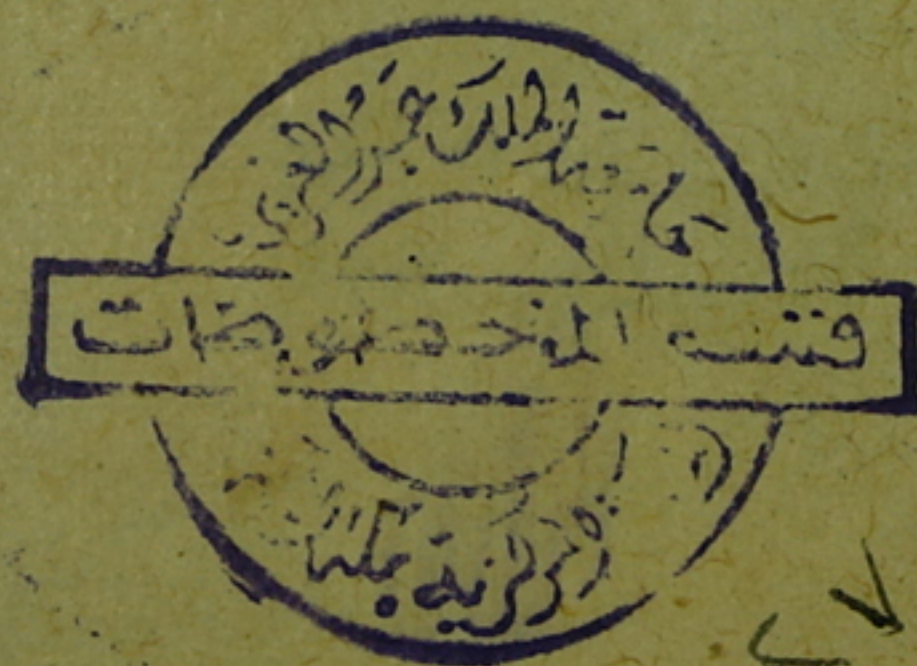 جامعة الملك عبد العزيز
قسم المخطوطات
المركزية بمكة